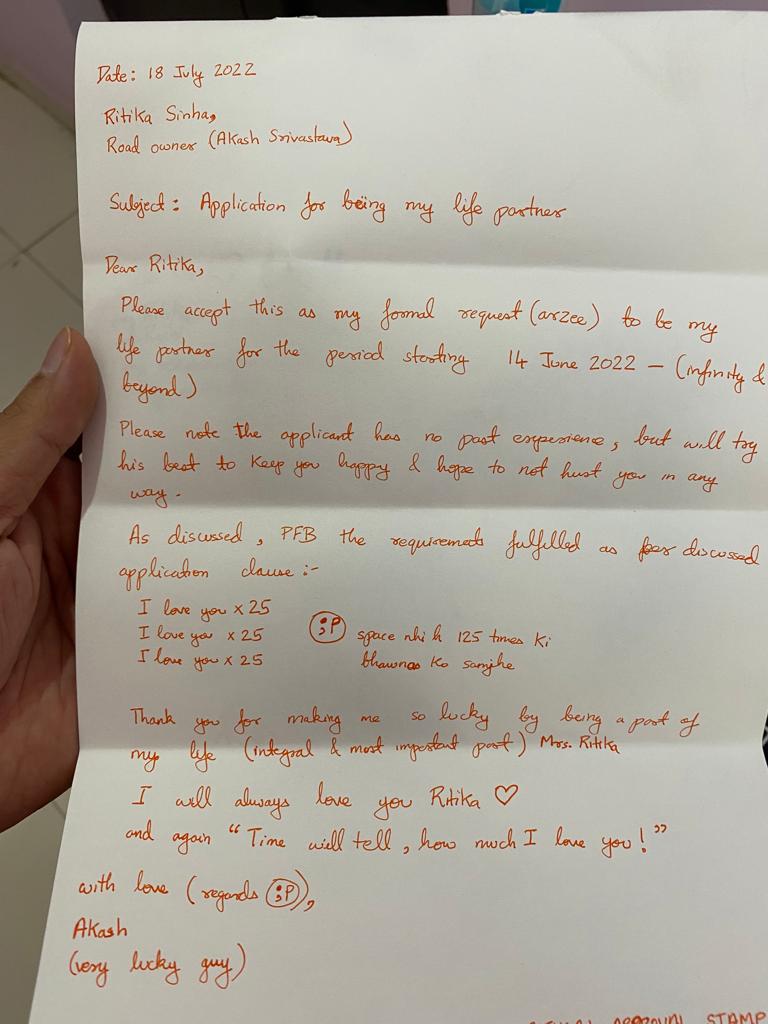 Date: 18 July 2022
Ritika Sinha,
Road owner (Akash Srivastava)
Subject: Application for being my life partner
Dear Ritika,
Please accept this as my formal request (arzee) to be my
life partner for the period starting 14 June 2022 – (infinity &
beyond)
Please note the applicant has no past experience, but will try
his best to keep you happy & hope to not hurt you in any
way.
As discussed, PFB the requirements fulfilled as per discussed
application clause :-
I love you x 25
I love you x 25 ;P space nhi h 125 times ki
I love you x 25 bhawnao ko samjhe
Thank you for making me so lucky by being a part of
my life (integral & most important part) Mrs. Ritika
I will always love you Ritika ♡
and again "Time will tell, how much I love you!"
with love (regards ;P),
Akash
(very lucky guy)
APPROVAL STAMP